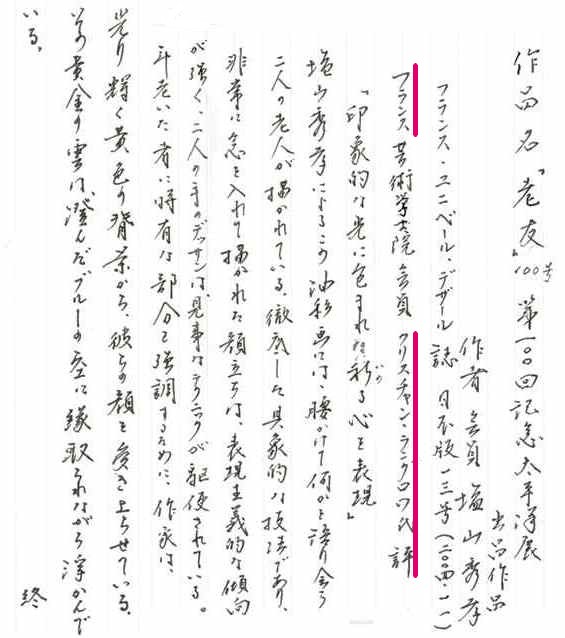 作品名「老友」100号 第一〇〇回記念太平洋展
出品作品
作者 会員 塩山秀孝
フランス・ユニベール・デザール誌 日本版一三号(二〇〇四・一一)
フランス芸術学士院会員 クリスチャン・ラングロワ氏 評
「印象的な光に包まれた祈る心を表現」
いの
塩山秀孝によるこの油彩画には、腰かけて何かを語り合う
二人の老人が描かれている。徹底した具象的な技法であり、
非常に念を入れて描かれた顔立ちは、表現主義的な傾向
が強く、二人の手のデッサンは、見事なテクニックが駆使されている。
年老いた者に特有な部分を強調するために、作家は、
光り輝く黄色の背景から、彼らの顔を浮き上らせている。
その黄金の雲は、澄んだブルーの空に縁取られながら浮かんで
いる。
終